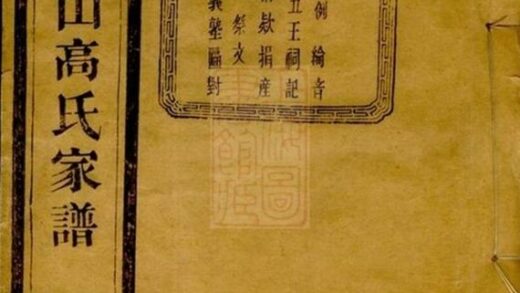 例 綸音
五王祠記
欵捐産
祭文
義塾匾對
山高氏家譜